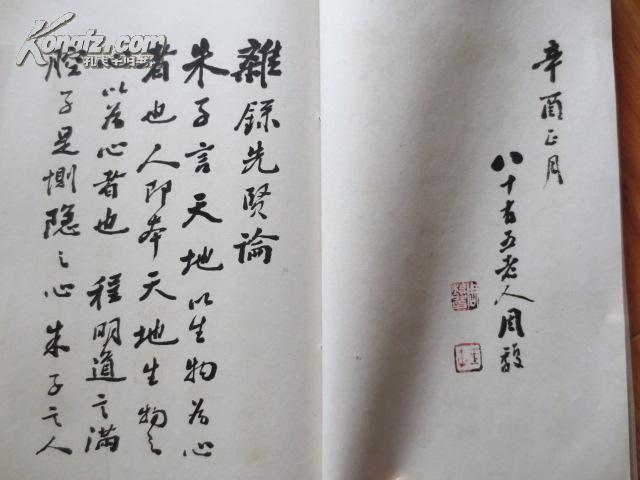 辛酉正月
八十有五老人周馥
雜錄先賢論
朱子言天地以生物為心
者也人即本天地生物之
以為心者也 程明道言滿
腔子是惻隱之心朱子言人
Kongfz.com
孔夫子旧书网